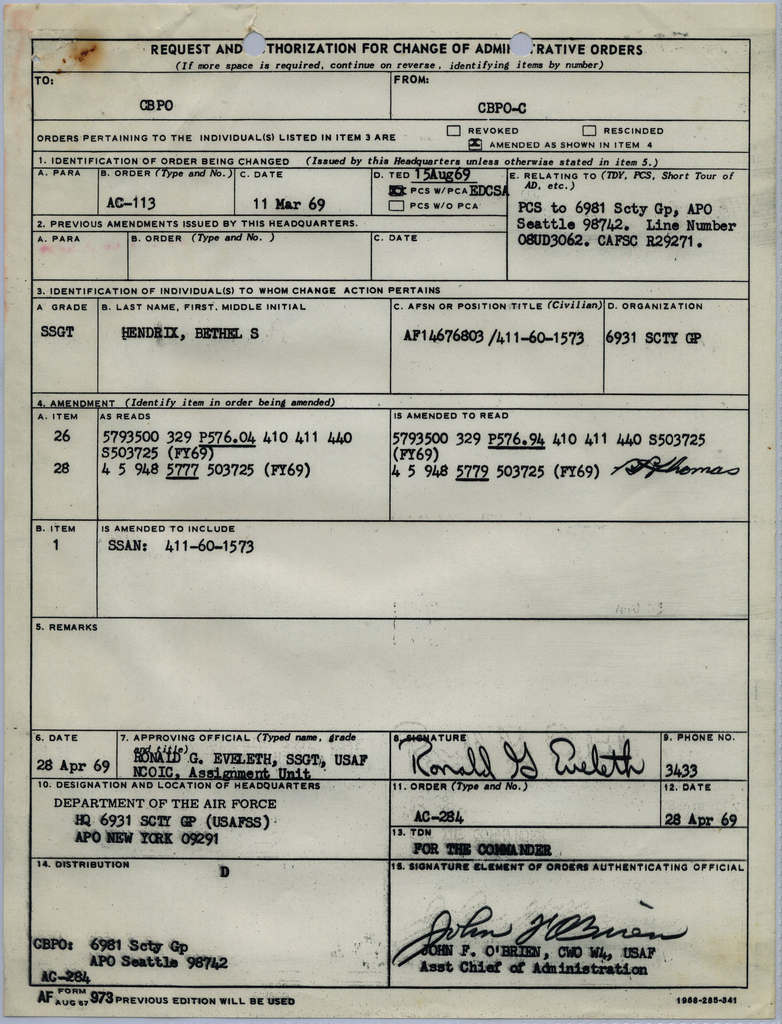 REQUEST AND THORIZATION FOR CHANGE OF ADMIN TRATIVE ORDERS
(If more space is required, continue on reverse, identifying items by number)
TO:
CBPO
FROM:
CBPO-C
ORDERS PERTAINING TO THE INDIVIDUAL(S) LISTED IN ITEM 3 ARE
REVOKED
RESCINDED
AMENDED AS SHOWN IN ITEM 4
1. IDENTIFICATION OF ORDER BEING CHANGED (Issued by this Headquarters unless otherwise stated in item 5.)
A. PARA
B. ORDER (Type and No.)
AC-113
C. DATE
11 Mar 69
D. TED 15Aug69
PCS W/PCA EDCSA
PCS W/O PCA
E. RELATING TO (TDY, PCS, Short Tour of
AD, etc.)
PCS to 6981 Scty Gp, APO
Seattle 98742. Line Number
08UD3062. CAFSC R29271.
2. PREVIOUS AMENDMENTS ISSUED BY THIS HEADQUARTERS.
A. PARA
B. ORDER (Type and No. )
C. DATE
3. IDENTIFICATION OF INDIVIDUAL(S) TO WHOM CHANGE ACTION PERTAINS
A GRADE
SSGT
B. LAST NAME, FIRST, MIDDLE INITIAL
HENDRIX, BETHEL S
C. AFSN OR POSITION TITLE (Civilian)
AF14676803/411-60-1573
D. ORGANIZATION
6931 SCTY GP
4. AMENDMENT (Identify item in order being amended)
A. ITEM
AS READS
IS AMENDED TO READ
26
5793500 329 P576.04 410 411 440
S503725 (FY69)
5793500 329 P576.94 410 411 440 S503725
(FY69)
28
4 5 948 5777 503725 (FY69)
4 5 948 5779 503725 (FY69)
B. ITEM
IS AMENDED TO INCLUDE
1
SSAN: 411-60-1573
5. REMARKS
6. DATE
28 Apr 69
7. APPROVING OFFICIAL (Typed name, grade
and title)
RONALD G. EVELETH, SSGT, USAF
NCOIC, Assignment Unit
8. SIGNATURE
Ronald G Eveleth
9. PHONE NO.
3433
10. DESIGNATION AND LOCATION OF HEADQUARTERS
DEPARTMENT OF THE AIR FORCE
HQ 6931 SCTY GP (USAFSS)
APO NEW YORK 09291
11. ORDER (Type and No.)
AC-284
12. DATE
28 Apr 69
13. TDN
FOR THE COMMANDER
14. DISTRIBUTION
D
CBPO: 6981 Scty Gp
APO Seattle 98742
AC-284
15. SIGNATURE ELEMENT OF ORDERS AUTHENTICATING OFFICIAL
John F O'Brien
JOHN F. O'BRIEN, CWO W4, USAF
Asst Chief of Administration
AF FORM AUG 67 973 PREVIOUS EDITION WILL BE USED
1968-285-341